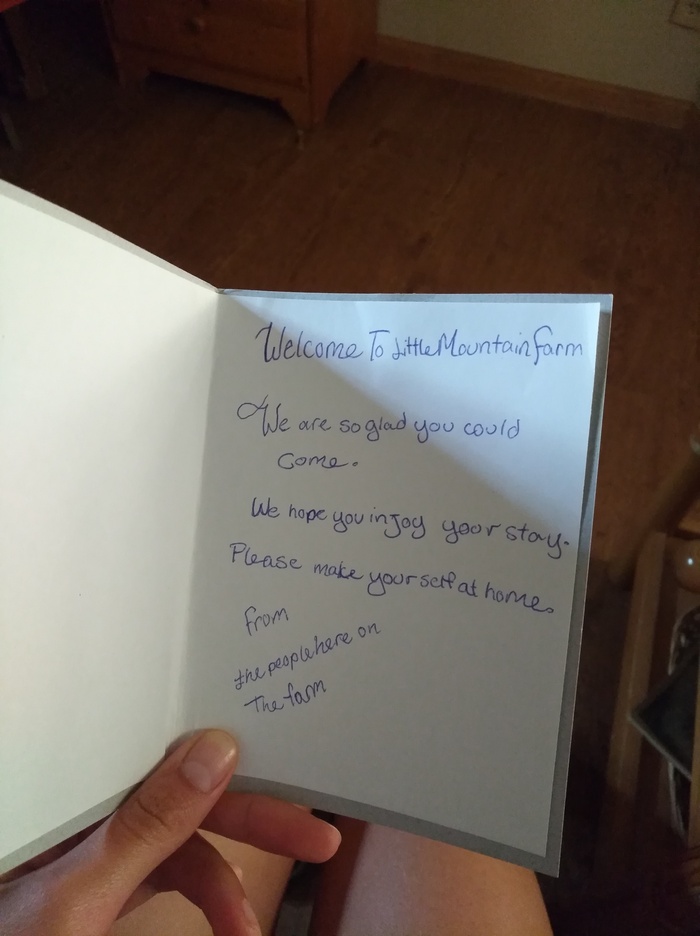 Welcome To Little Mountain farm
We are so glad you could
come.
We hope you injoy your stay.
Please make your self at home.
from
the people here on
The farm